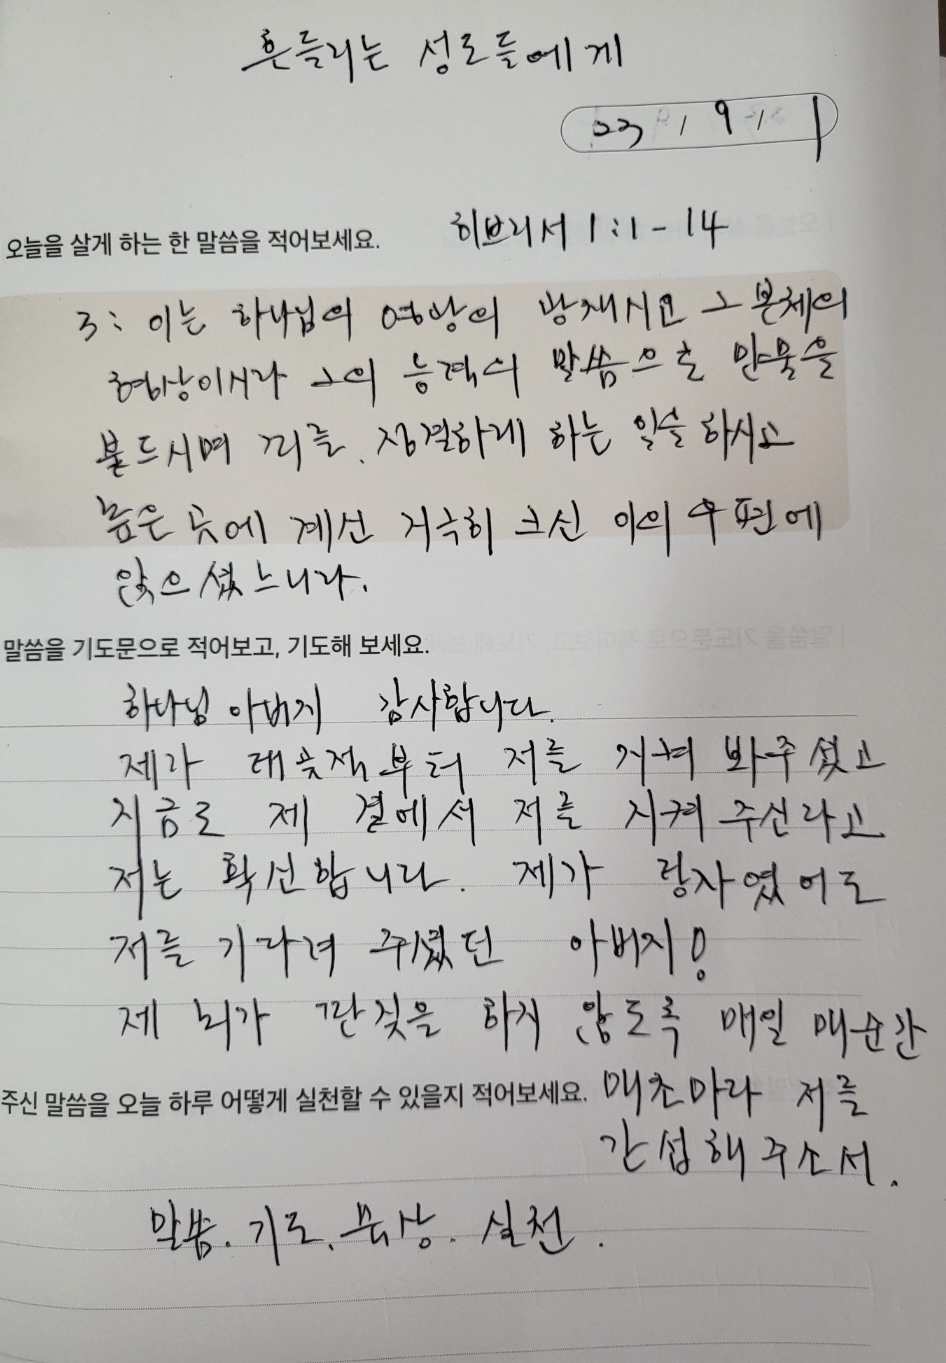 흔들리는 성도들에게
23 / 9 / 1
오늘을 살게 하는 한 말씀을 적어보세요. 히브리서 1:1-14
3: 이는 하나님의 영광의 광채시요 그 본체의
형상이시라 그의 능력의 말씀으로 만물을
붙드시며 죄를 정결하게 하는 일을 하시고
높은 곳에 계신 지극히 크신 이의 우편에
앉으셨느니라.
말씀을 기도문으로 적어보고, 기도해 보세요.
하나님 아버지 감사합니다.
제가 태윳적부터 저를 지켜 봐주셨고
지금도 제 곁에서 저를 지켜 주신라고
저는 확신합니다. 제가 탕자였어도
저를 기다려 주셨던 아버지!
제 뇌가 딴짓을 하지 않도록 매일 매순간
매초마다 저를
간섭해 주소서.
주신 말씀을 오늘 하루 어떻게 실천할 수 있을지 적어보세요.
말씀. 기도. 묵상. 실천.